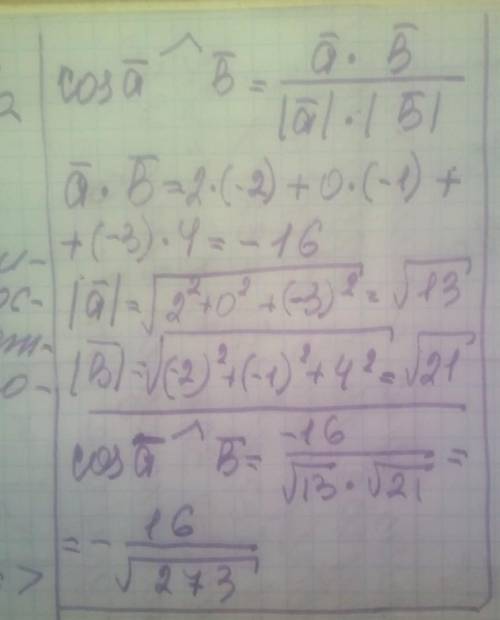 cos ā ^ b̄ = ā · b̄ / |ā| · |b̄|
ā · b̄ = 2·(-2) + 0·(-1) +
+ (-3)·4 = -16
|ā| = √(2² + 0² + (-3)²) = √13
|b̄| = √((-2)² + (-1)² + 4²) = √21
cos ā ^ b̄ = -16 / √13 · √21 =
= - 16 / √273